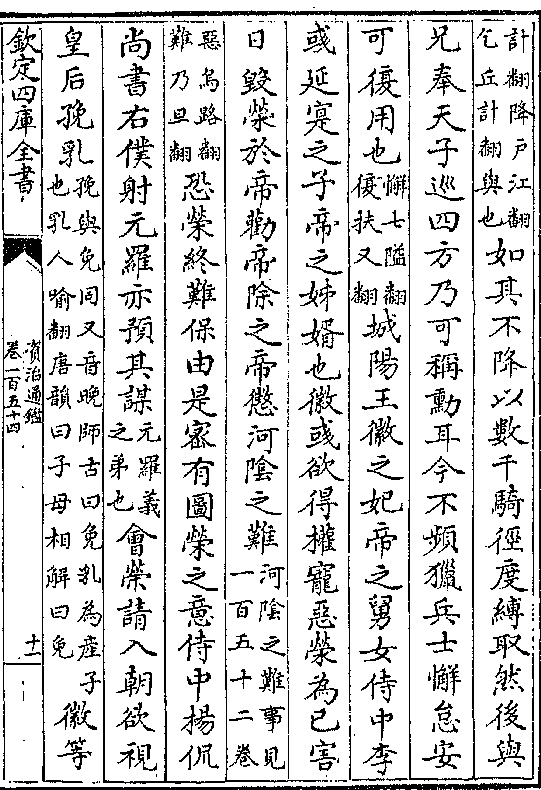 計翻降戸江翻
乞丘計翻與也
如其不降以數千騎徑度縛取然後與
兄奉天子巡四方乃可稱勳耳今不頻獵兵士懈怠安
可復用也
懈古隘翻
復扶又翻
城陽王徽之妃帝之舅女侍中李
彧延寔之子帝之姊婿也徽彧欲得權寵惡榮為已害
日毀榮於帝勸帝除之帝懲河陰之難
河陰之難事見
一百五十二卷
惡烏路翻
難乃旦翻
恐榮終難保由是密有圖榮之意侍中楊侃
尚書右僕射元羅亦預其謀
元羅義
之弟也
會榮請入朝欲視
皇后㝃乳
㝃與免同又音晚師古曰免乳為產子
也乳人喻翻唐韻曰子母相解曰免
徽等
欽定四庫全書
資治通鑑
卷一百五十四
十一